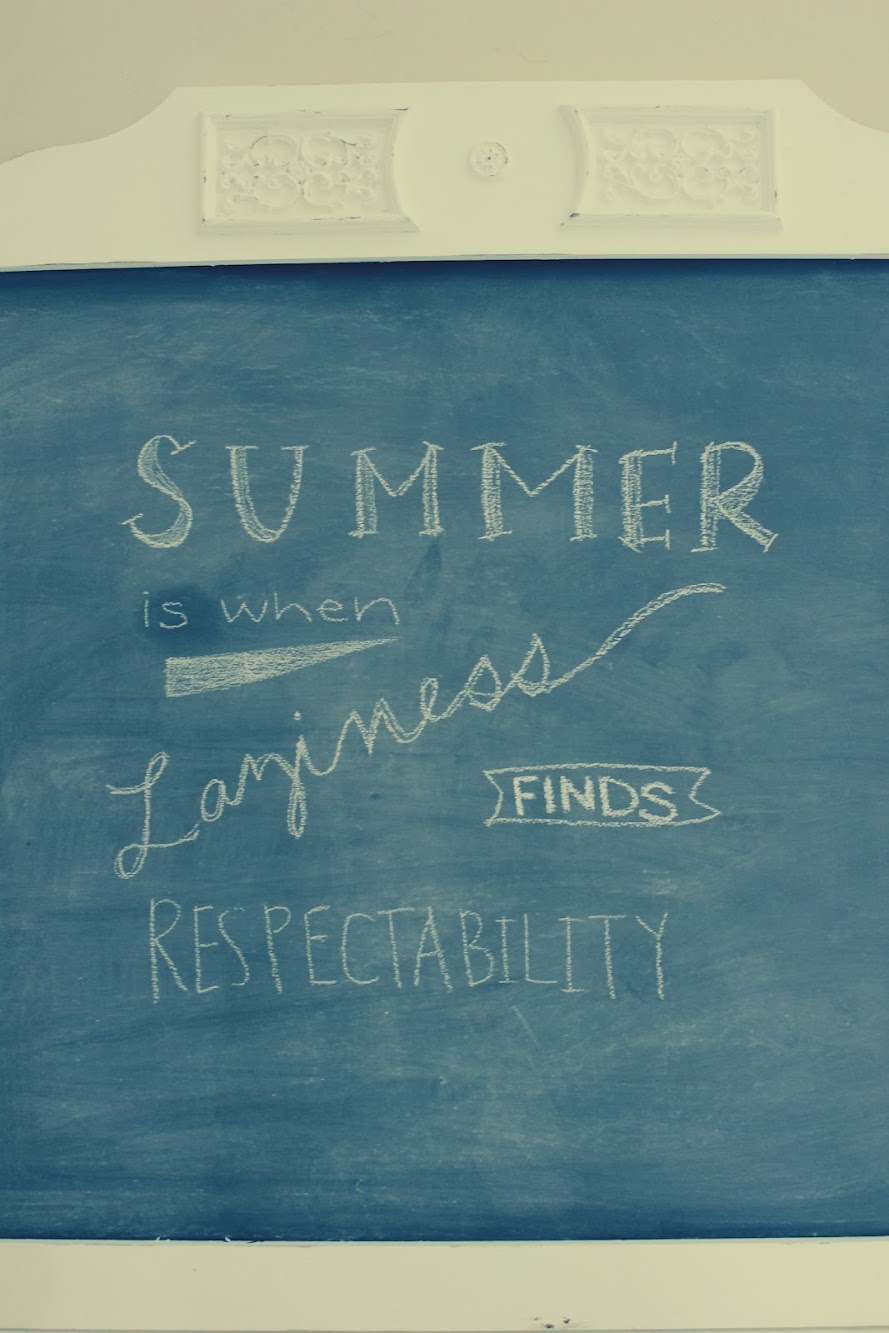 SUMMER
is when
Laziness
FINDS
RESPECTABILITY